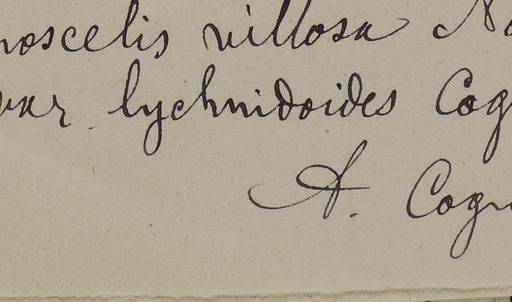 noscelis villosa Na
var. lychnidoides Cog
A. Cogn